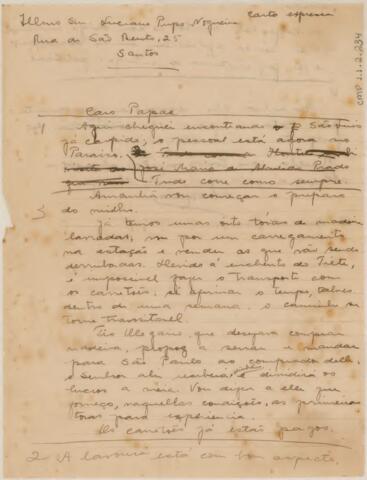 Illmo Snr. Luciano Pupo Nogueira
Carta expressa
Rua de São Bento, 25
Santos
CMP 1.1.2.234
Caro Papae
1 Aqui cheguei encontrando o São
já carpido, o pessoal está agora no
Paraiso.
José Maria de Almeida Prado
Tudo corre como sempre.
Amanhã vou começar o preparo
do milho.
3
Já temos umas oito tóras de madeira
lavradas, vou por um carregamento
na estação e vender as que vão sendo
derrubadas. Devido á enchente do Tiete,
é impossivel fazer o transporte com
os caretões, si a firmar o tempo, talvez
dentro de uma semana o caminho se
torne transitavel.
Tio Olegario que desejava comprar
madeira, propoz a serrar e mandar
para São Paulo ao comprador delle
o Senhor receberia, e dividiria os
lucros a meia. Vou dizer a elle que
forneço, naquellas condições, as primeiras
toras para experiencia.
Os caretões já estão pagos.
2 A lavoura está com bom aspecto.